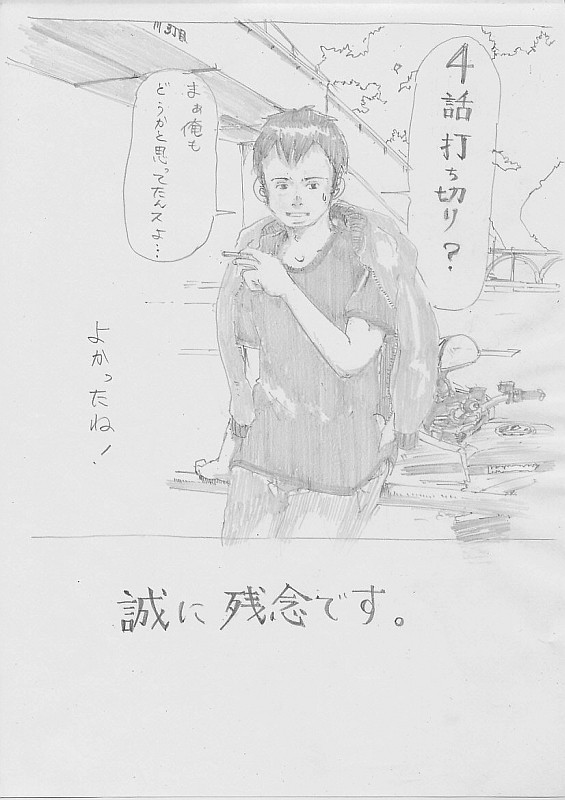 4話打ち切り?
まぁ俺も
どうかと思ってたんスよ…
よかったね!
誠に残念です。